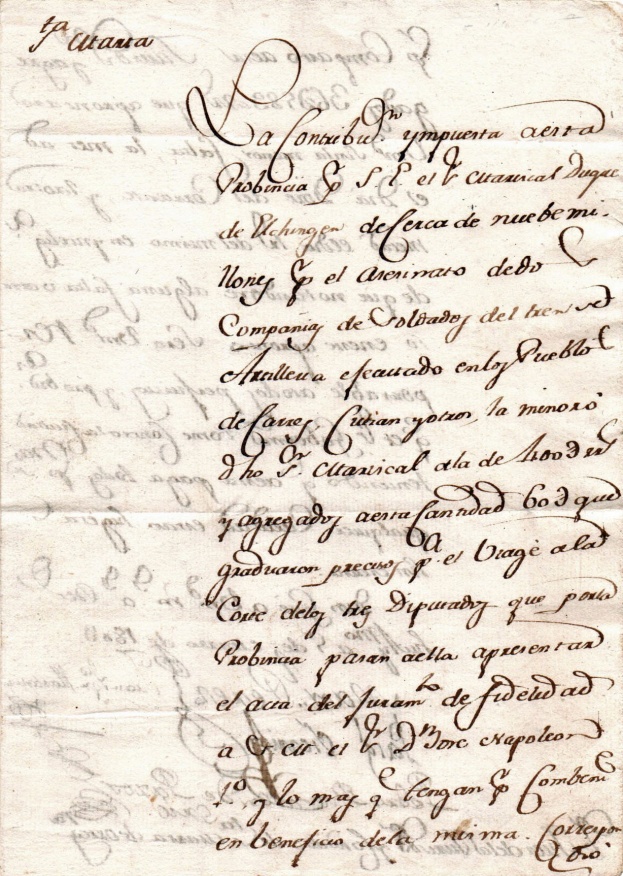 ta Marta
La Contribu.n ympuesta aesta
Probincia p S. E. el Sr Mariscal Duque
de Elchingen de Cerca de nuebe mi-
llones p el asesinato de dos
Compañias de Soldados del tren de
Artilleria efectuado enlos Pueblos
de Carres, Cutian yotros, la minoró
dho Sr. Mariscal ala de 400 d rrs
y agregados aesta Cantidad 60 d que
graduaron precisos p.a el Viage ala
Corte delos tres Diputados que porla
Probincia pasan aella apresentar
el acta del Juram.to de fidelidad
a S. M. el Sr Dn Jose Napoleon
1.o y lo mas qe tengan p Combene
en beneficio dela misma. Correspon
dió